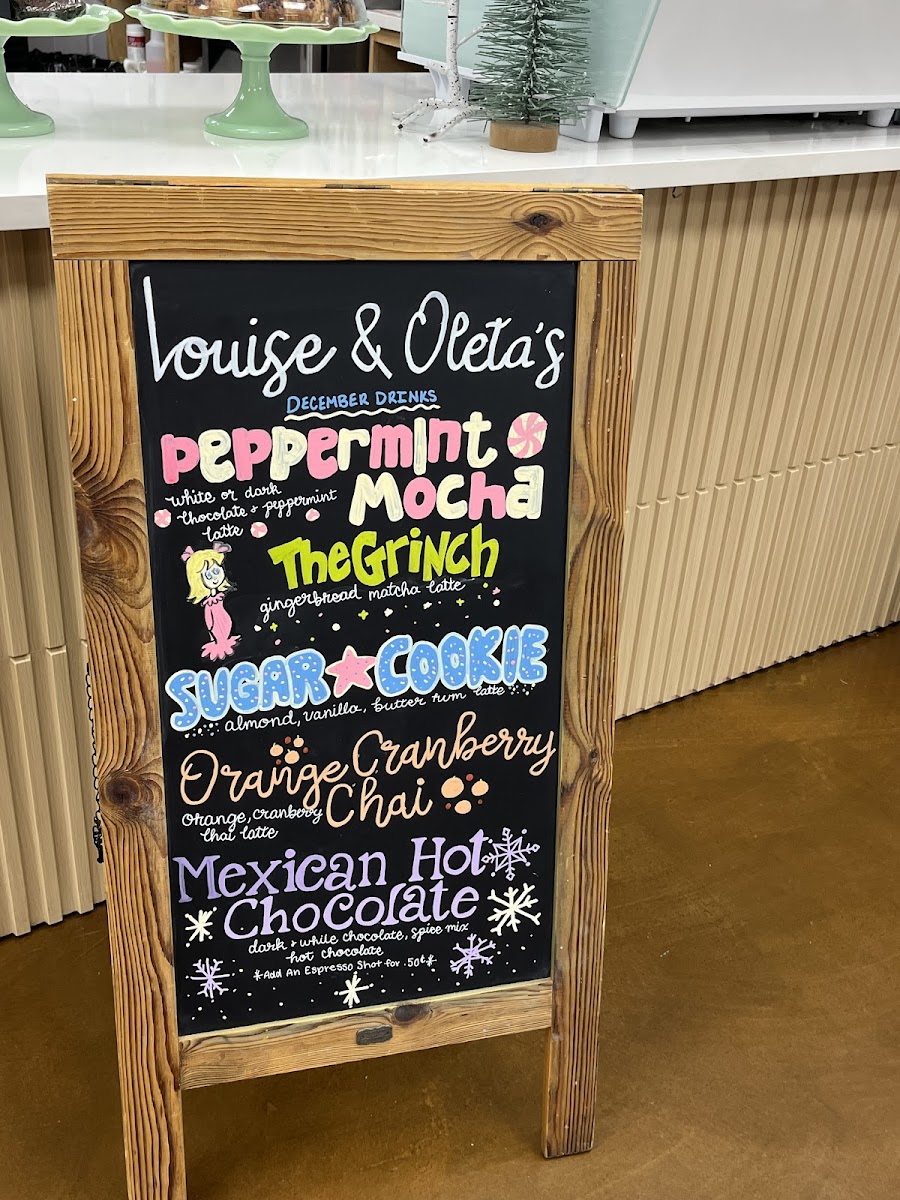 Louise & Oleta's
DECEMBER DRINKS
Peppermint
Mocha
white or dark
chocolate + peppermint
latte
The Grinch
gingerbread matcha latte
SUGAR COOKIE
almond, vanilla, butter rum latte
Orange Cranberry
Chai
orange, cranberry
chai latte
Mexican Hot
Chocolate
dark + white chocolate, spice mix
hot chocolate
*Add An Espresso Shot for .50¢*